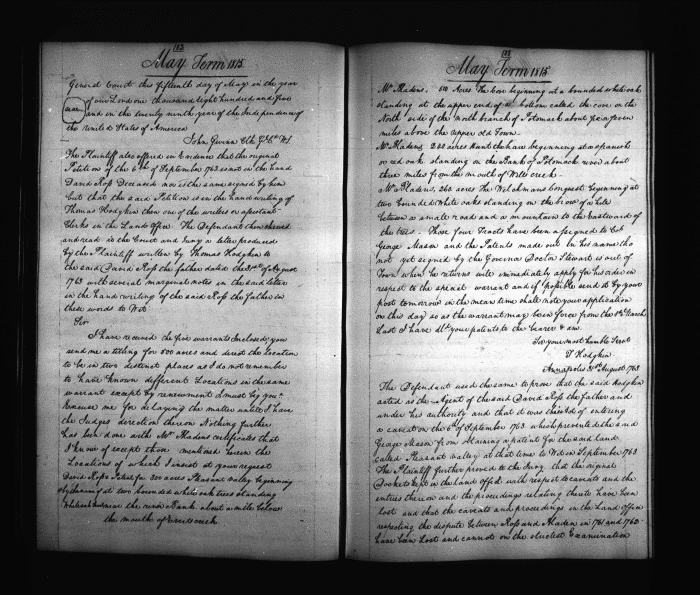 May Term 1815
General Court this fifteenth day of May in the year
of our Lord one thousand eight hundred and five
and in the twenty ninth year of the Independence of
the United States of America
John Gwinn Clk
The Plaintiff also offered in Evidence that the original
Petition of the 6th of September 1763 is not in the hand
David Ross Deceased nor is the same signed by him
but that the said Petition is in the hand writing of
Thomas Hodgkin then one of the writers or assistant
Clerks in the Land Office The Defendant then shewed
and read to the Court and Jury a letter produced
by the Plaintiff written by Thomas Hodgkin to
the said David Ross the father dated the 31st of August
1763 with several marginal notes in the said letter
in the hand writing of the said Ross the father in
these words To Wit
Sir
I have received the five warrants Inclosed you
send me a titling for 500 acres and direct the location
to be in two distinct places as I do not remember
to have known different Locations in the same
warrant except by renewment I must beg you
Excuse me for delaying the matter untill I have
the Judges direction thereon Nothing further
has been done with Mr Madens certificates that
I know of except those mentioned herein the
Locations of which I insert at your request
David Ross 300 acres Pleasant valley beginning
at two bounded white oak trees standing
near the river Bank about a mile below
the mouth of
May Term 1815
Mr Madens, 510 Acres The Cove beginning at a bounded white oak
standing at the upper end of a bottom called the cove on the
North side of the north branch of Potomack about six or seven
miles above the upper Old Town.
Mr Madens 200 acres Hunt the hare beginning at a spanish
or red oak standing on the Bank of Potomack river about
three miles from the mouth of Wills creek.
Mr Madens, 260 acres The Welchmans Conquest beginning at
two bounded White oaks standing on the brow of a hill
between a small road and a mountain to the eastward of
the trees. These four Tracts have been assigned to Col
George Mason and the Patents made out in his name tho
not yet signed by the Governor Doctor Stewart is out of
Town when he returns will immediately apply for his order in
respect to the special warrant and if possible send it by your
post tomorrow in the mean time shall note your application
on this day so as the warrant may be in force from the
last I have dld your patents to the bearer & am
Sir your most humble Servt
T Hodgkin
Annapolis 31st August 1763
The Defendant used the same to prove that the said Hodgkin
acted as the Agent of the said David Ross the father and
under his authority and that it was the of entering
a caveat on the 6th of September 1763 which prevented the said
George Mason from obtaining a patent for the said land
called Pleasant valley at that time to Wit on September 1763
The Plaintiff further proved to the Jury that the original
Dockets kept in the Land Office with respect to caveats and the
entries thereon and the proceedings relating thereto have been
lost and that the caveats and proceedings in the Land Office
respecting the dispute between Ross and Maden in 1761 and 1762
have been lost and cannot on the strictest Examination